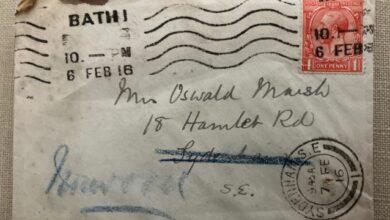 BATH 1
10.—PM
6 FEB 16
10.—PM
6 FEB 16
ONE PENNY
Mrs Oswald Marsh
18 Hamlet Rd
Sydenham
S.E.
SYDENHAM S.E.
7 FE
16